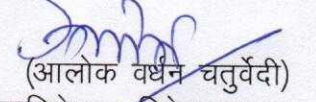 (आलोक वर्धन चतुर्वेदी)